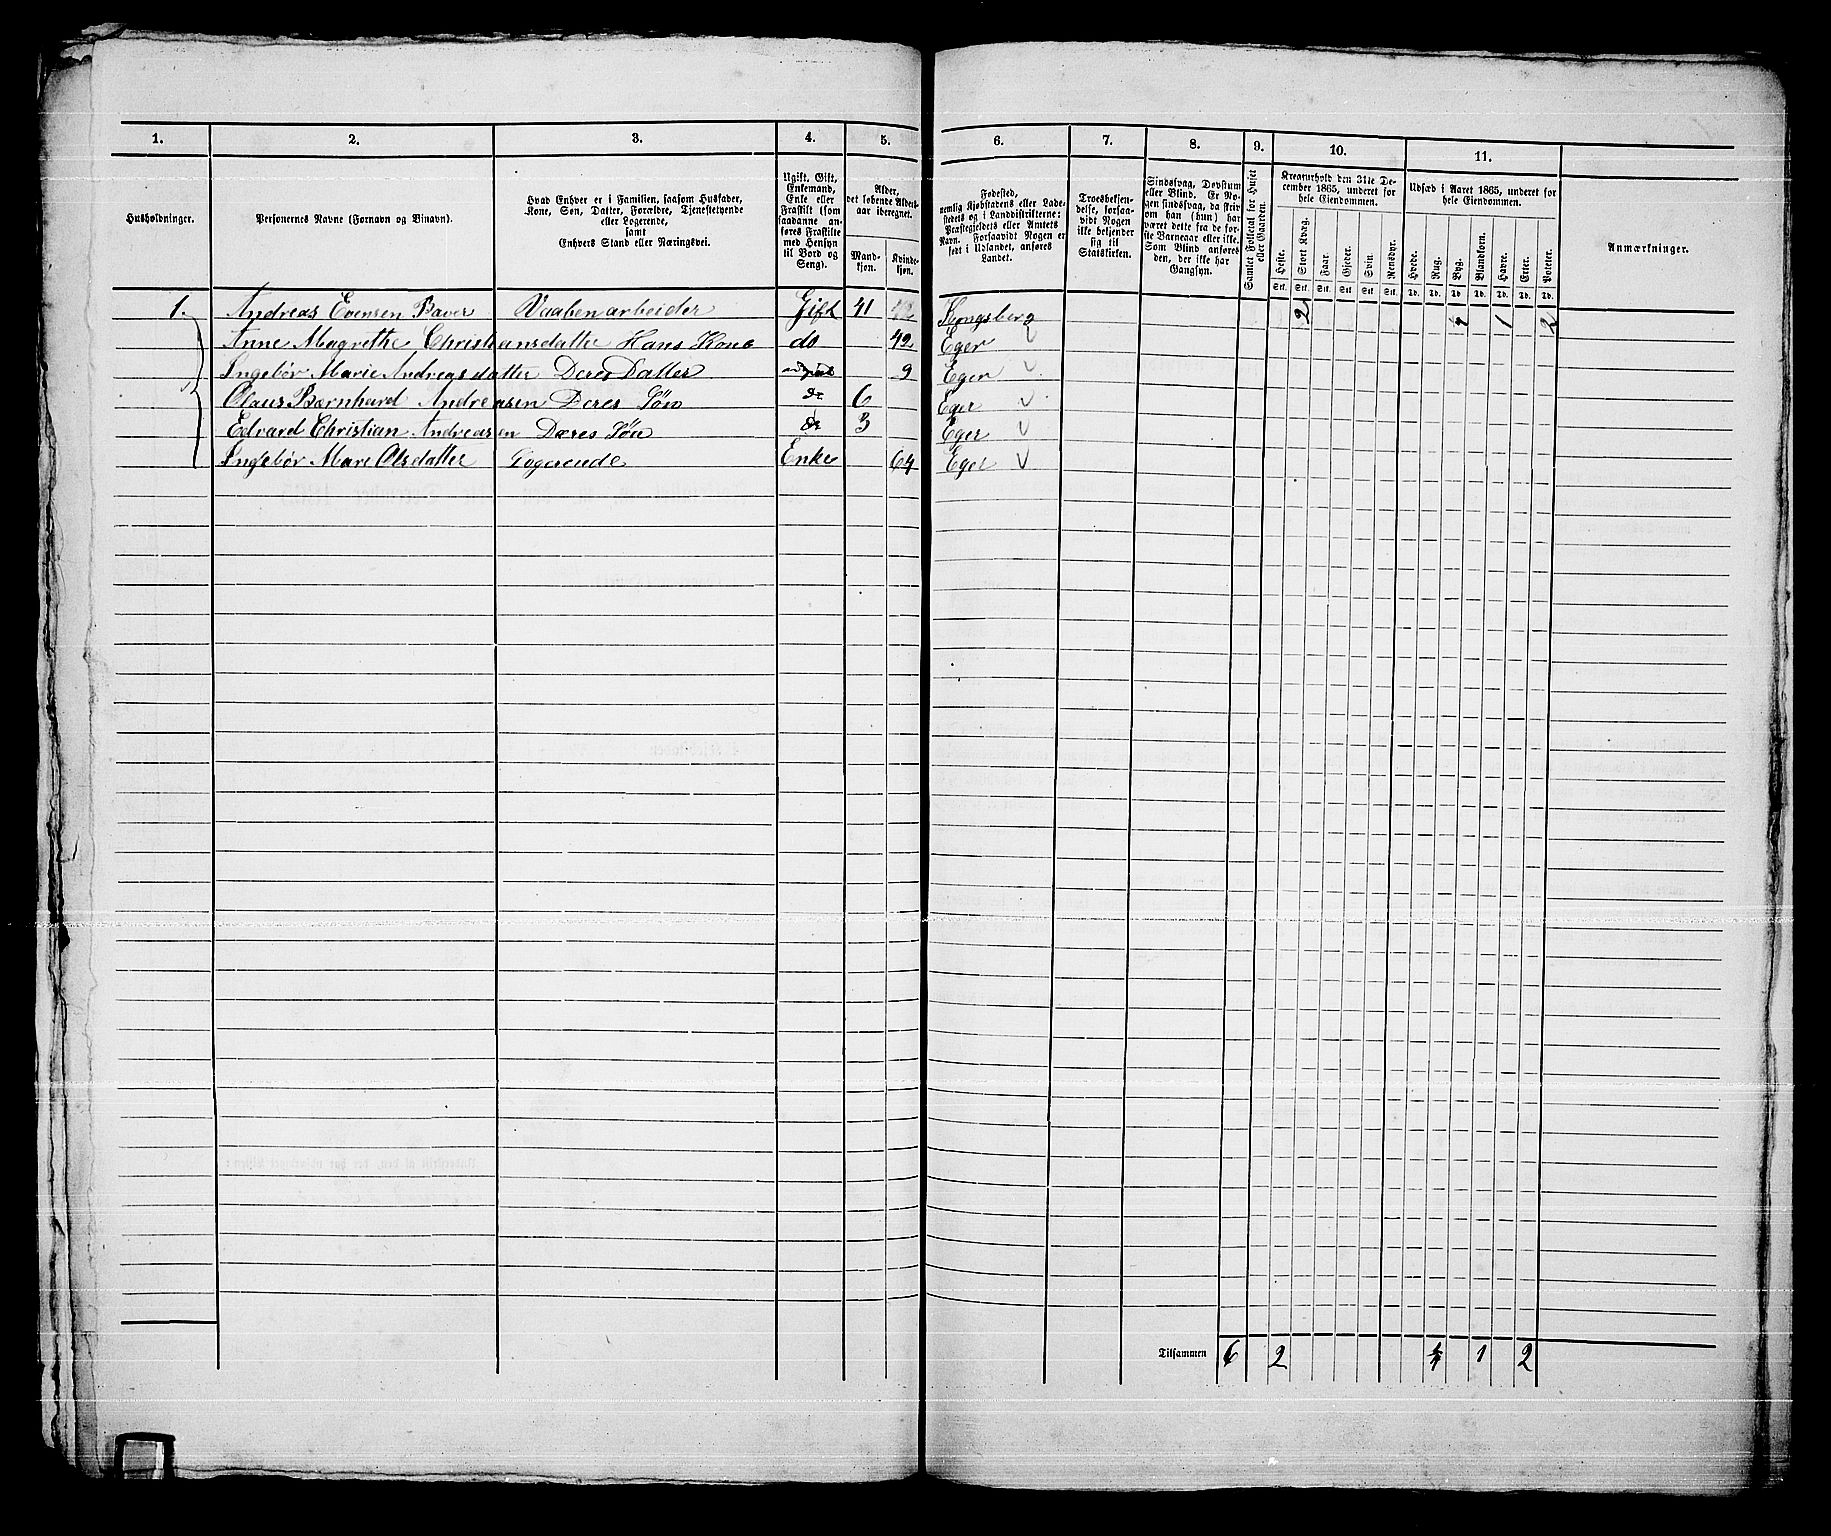 1. 2. 3. 4. 5. 6. 7. 8. 9. 10. 11.
Husholdninger.
Personernes Navne (Fornavn og Binavn).
Hvad Enhver er i Familien, saasom Husfader,
Kone, Søn, Datter, Forældre, Tjenestetyende
eller Logerende,
samt
Enhvers Stand eller Næringsvei.
Ugift, Gift,
Enkemand,
Enke eller
Fraskilt (som
saadanne an-
føres Fraskilte
med Hensyn
til Bord og
Seng).
Alder,
det løbende Alders-
aar iberegnet.
Mand-
kjøn.
Kvinde-
kjøn.
Fødested,
nemlig Kjøbstadens eller Lade-
stedets og i Landdistrikterne:
Præstegjeldets eller Annexets
Navn. Forsaavidt Nogen er
født i Udlandet, anføres
Landet.
Troesbekjen-
delse, forsaa-
vidt Nogen
ikke bekjender
sig til
Statskirken.
Sindssvag, Døvstum
eller Blind. Er No-
gen sindssvag, da skriv
om han (hun) har
været dette fra de før-
ste Barneaar eller ikke.
Som Blind anføres
den, der ikke har
Gangsyn.
Samlet Folketal for Huset
eller Gaarden.
Kreaturhold den 31te De-
cember 1865, underet for
hele Eiendommen.
Heste.
Stort Kvæg.
Faar.
Gjeder.
Svin.
Rensdyr.
Stk. Stk. Stk. Stk. Stk. Stk.
Udsæd i Aaret 1865, underet for
hele Eiendommen.
Hvede.
Rug.
Byg.
Blandkorn.
Havre.
Erter.
Poteter.
Td. Td. Td. Td. Td. Td. Td.
Anmærkninger.
1. Andreas Evensen Baver Vaabenarbeider Gift 41 Kongsberg 2 1 2
Anne Magrethe Christiansdatter Hans Kone do 42 Eger
Ingebør Marie Andreasdatter Deres Datter 9 Eger
Claus Bærnhard Andreasen Deres Søn do 6 Eger
Edvard Christian Andreasen Dæres Søn do 3 Eger
Ingebør Mari Olsdatter Logerende Enke 64 Eger
Tilsammen 6 2 1 2